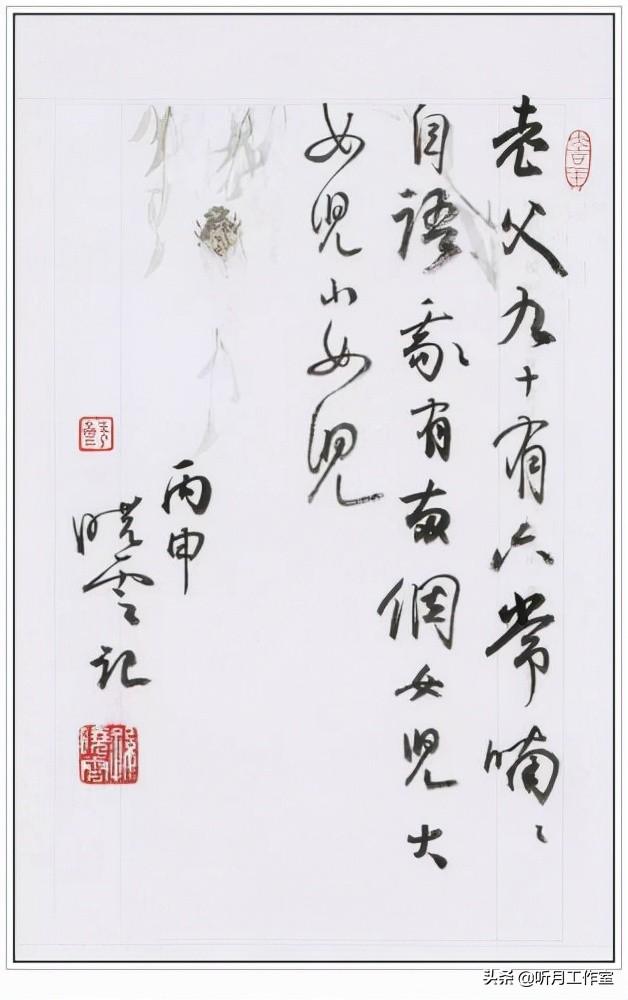 老父九十有六常喃〻
自語我有两個女児大
女児小女児
丙申
晓雲記
头条 @听月工作室